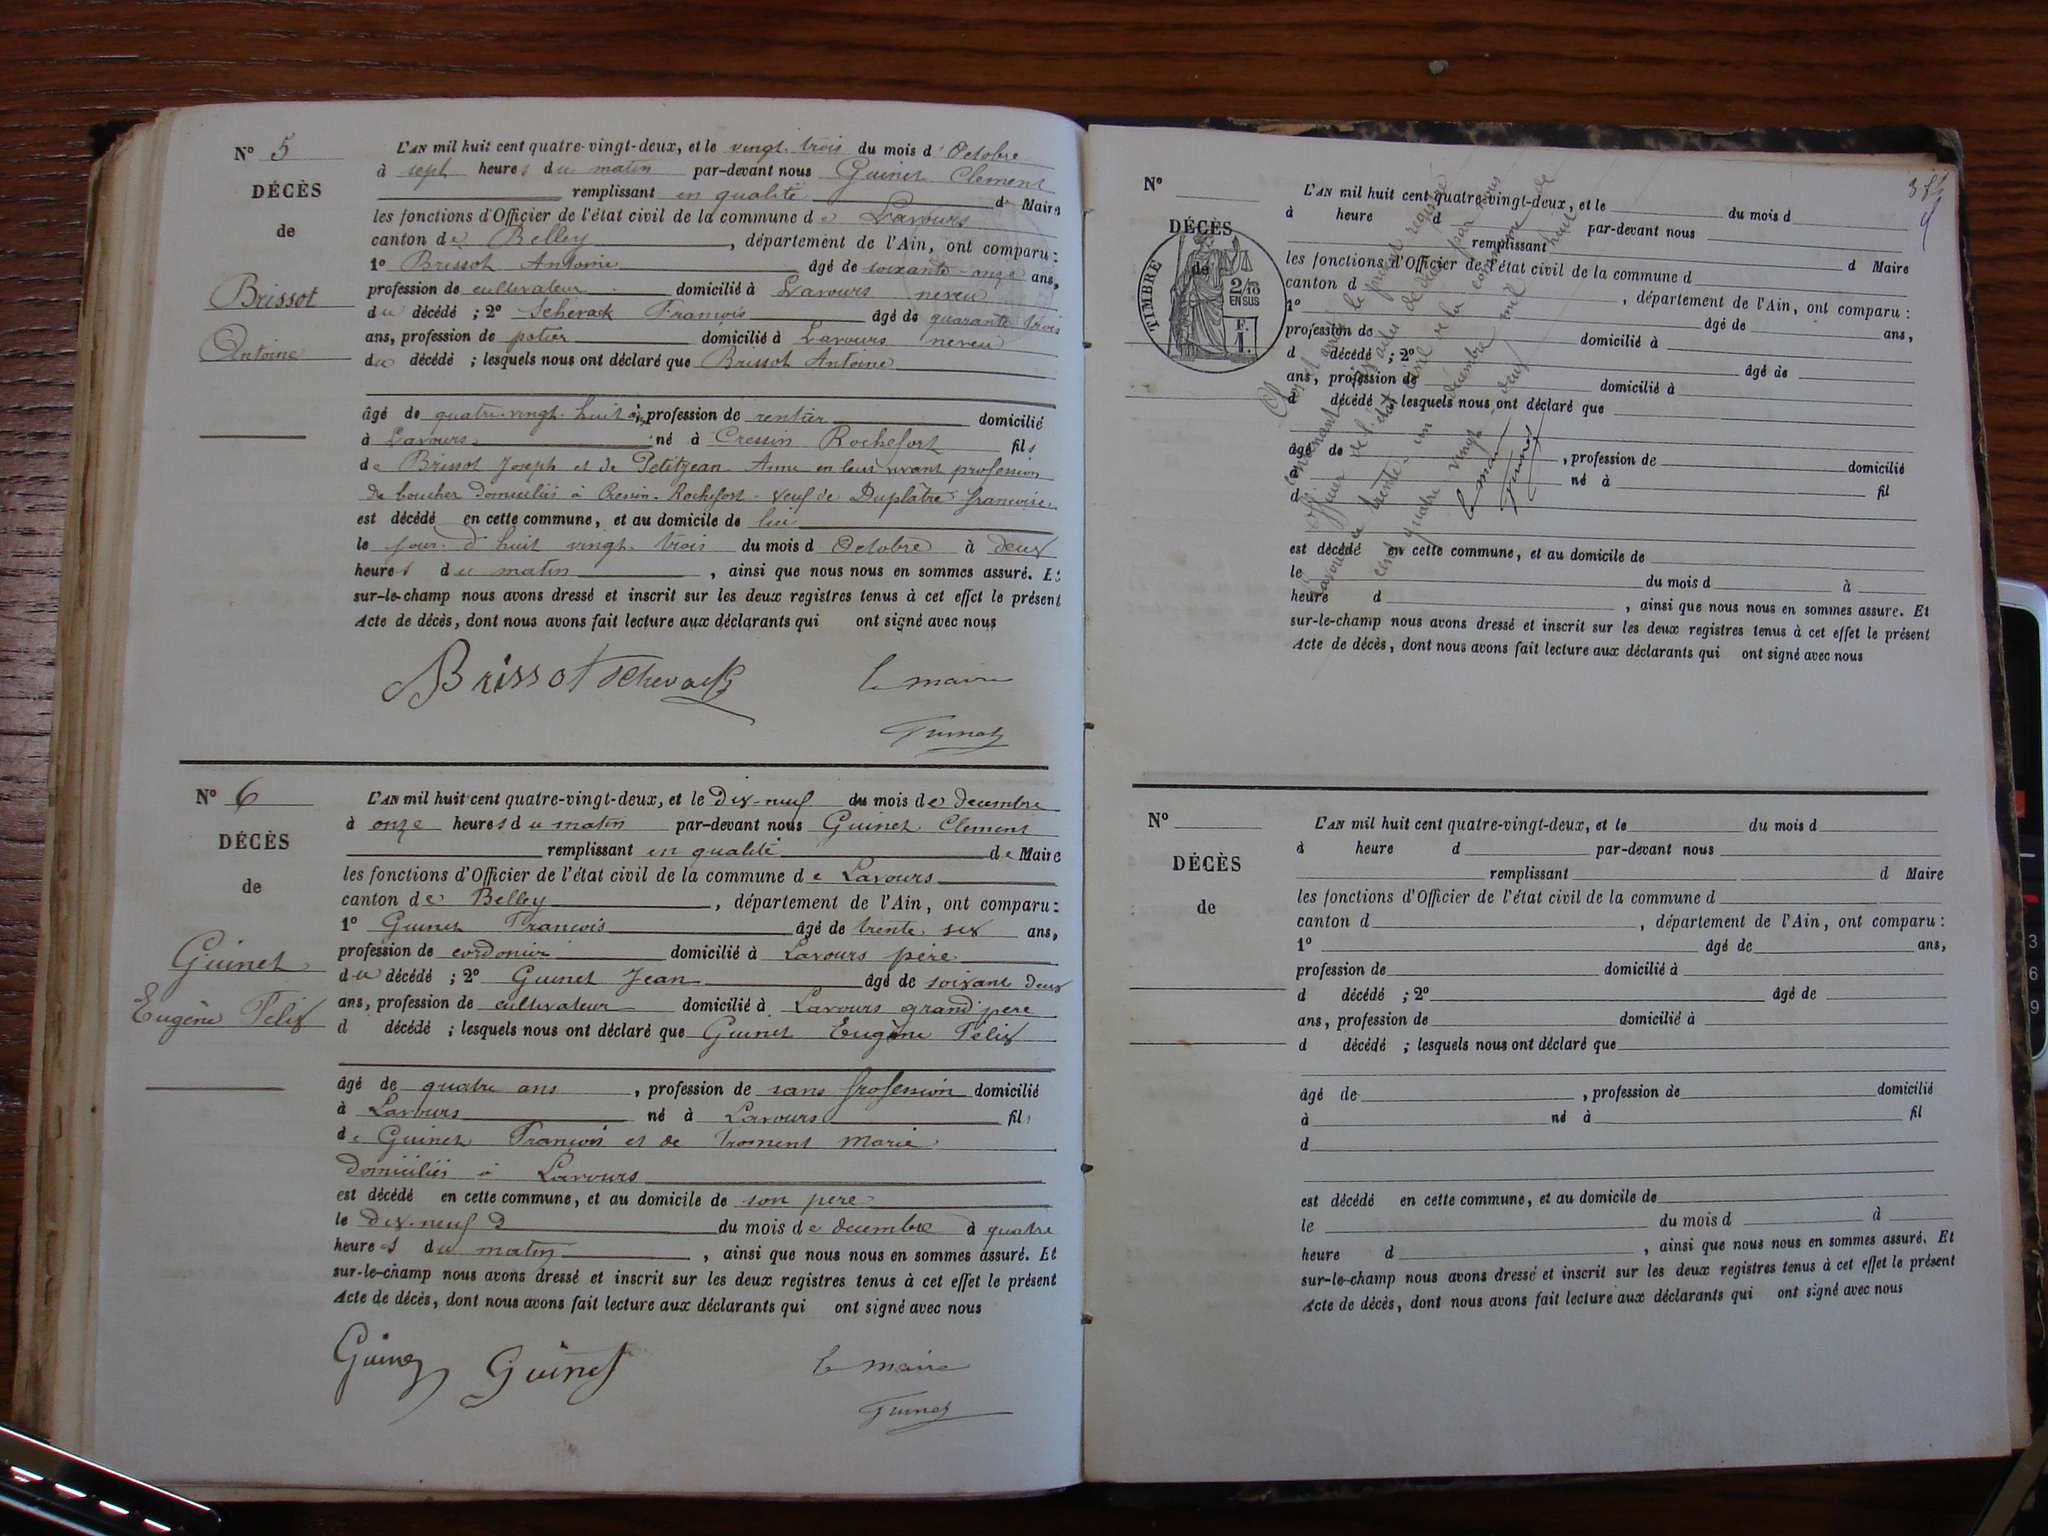 N° 5
DÉCÈS
de
Brissot
Antoine
L'AN mil huit cent quatre-vingt-deux, et le vingt-trois du mois d'Octobre
à sept heures du matin par-devant nous Guinet Clement
remplissant en qualité de Maire
les fonctions d'Officier de l'état civil de la commune de Lavours
canton de Belley, département de l'Ain, ont comparu:
1° Brissot Antoine âgé de soixante-onze ans,
profession de cultivateur domicilié à Lavours neveu
du décédé; 2° Schevack François âgé de quarante trois
ans, profession de potier domicilié à Lavours neveu
du décédé; lesquels nous ont déclaré que Brissot Antoine
âgé de quatre-vingt-huit a, profession de rentier domicilié
à Lavours né à Cressin Rochefort fils
de Brissot Joseph et de Petitjean Anne en leur vivant profession
de boucher domiciliés à Cressin-Rochefort - veuf de Duplâtre francoise
est décédé en cette commune, et au domicile de lui
le jour d'huit vingt-trois du mois d Octobre à deux
heures du matin, ainsi que nous nous en sommes assuré. Et
sur-le-champ nous avons dressé et inscrit sur les deux registres tenus à cet effet le présent
Acte de décès, dont nous avons fait lecture aux déclarants qui ont signé avec nous
Brissot Schevack le maire
Guinet
N° 6
DÉCÈS
de
Guinet
Eugène Félix
L'AN mil huit cent quatre-vingt-deux, et le Dix-neuf du mois de decembre
à onze heures du matin par-devant nous Guinet Clement
remplissant en qualité de Maire
les fonctions d'Officier de l'état civil de la commune de Lavours
canton de Belley, département de l'Ain, ont comparu:
1° Guinet Francois âgé de trente six ans,
profession de cordonier domicilié à Lavours père
du décédé; 2° Guinet Jean âgé de soixant deux
ans, profession de cultivateur domicilié à Lavours grand'pere
d décédé; lesquels nous ont déclaré que Guinet Eugène Félix
âgé de quatre ans, profession de sans profession domicilié
à Lavours né à Lavours fils
de Guinet François et de Froment Marie
domiciliés à Lavours
est décédé en cette commune, et au domicile de son pere
le dix-neuf d du mois de decembre à quatre
heures du matin, ainsi que nous nous en sommes assuré. Et
sur-le-champ nous avons dressé et inscrit sur les deux registres tenus à cet effet le présent
Acte de décès, dont nous avons fait lecture aux déclarants qui ont signé avec nous
Guinet Guinet le maire
Guinet
N°
DÉCÈS
de
TIMBRE
2/10
EN SUS
F.
1.
L'AN mil huit cent quatre-vingt-deux, et le du mois d
à heure d par-devant nous
remplissant d Maire
les fonctions d'Officier de l'état civil de la commune d
canton d, département de l'Ain, ont comparu:
1° âgé de ans,
profession de domicilié à
d décédé; 2° âgé de
ans, profession de domicilié à
d décédé; lesquels nous ont déclaré que
âgé de, profession de domicilié
à né à fil
d
est décédé en cette commune, et au domicile de
le du mois d à
heure d, ainsi que nous nous en sommes assuré. Et
sur-le-champ nous avons dressé et inscrit sur les deux registres tenus à cet effet le présent
Acte de décès, dont nous avons fait lecture aux déclarants qui ont signé avec nous
Clos et arrêté le présent registre
contenant actes de décès par nous
officier de l'état civil de la commune de
Lavours le trente-un décembre mil huit
cent quatre vingt deux
le maire
Guinet
N°
DÉCÈS
de
L'AN mil huit cent quatre-vingt-deux, et le du mois d
à heure d par-devant nous
remplissant d Maire
les fonctions d'Officier de l'état civil de la commune d
canton d, département de l'Ain, ont comparu:
1° âgé de ans,
profession de domicilié à
d décédé; 2° âgé de
ans, profession de domicilié à
d décédé; lesquels nous ont déclaré que
âgé de, profession de domicilié
à né à fil
d
est décédé en cette commune, et au domicile de
le du mois d à
heure d, ainsi que nous nous en sommes assuré. Et
sur-le-champ nous avons dressé et inscrit sur les deux registres tenus à cet effet le présent
Acte de décès, dont nous avons fait lecture aux déclarants qui ont signé avec nous
3
6
9